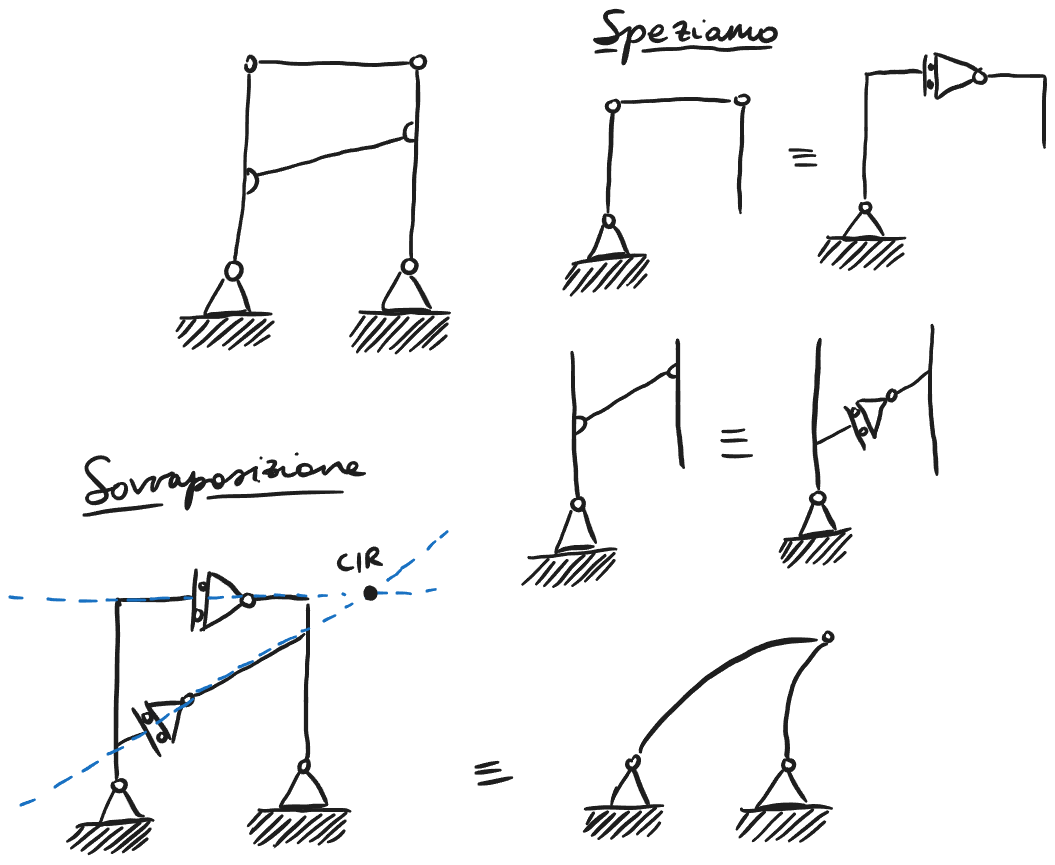 Speziamo
Sovrapposizione
CIR